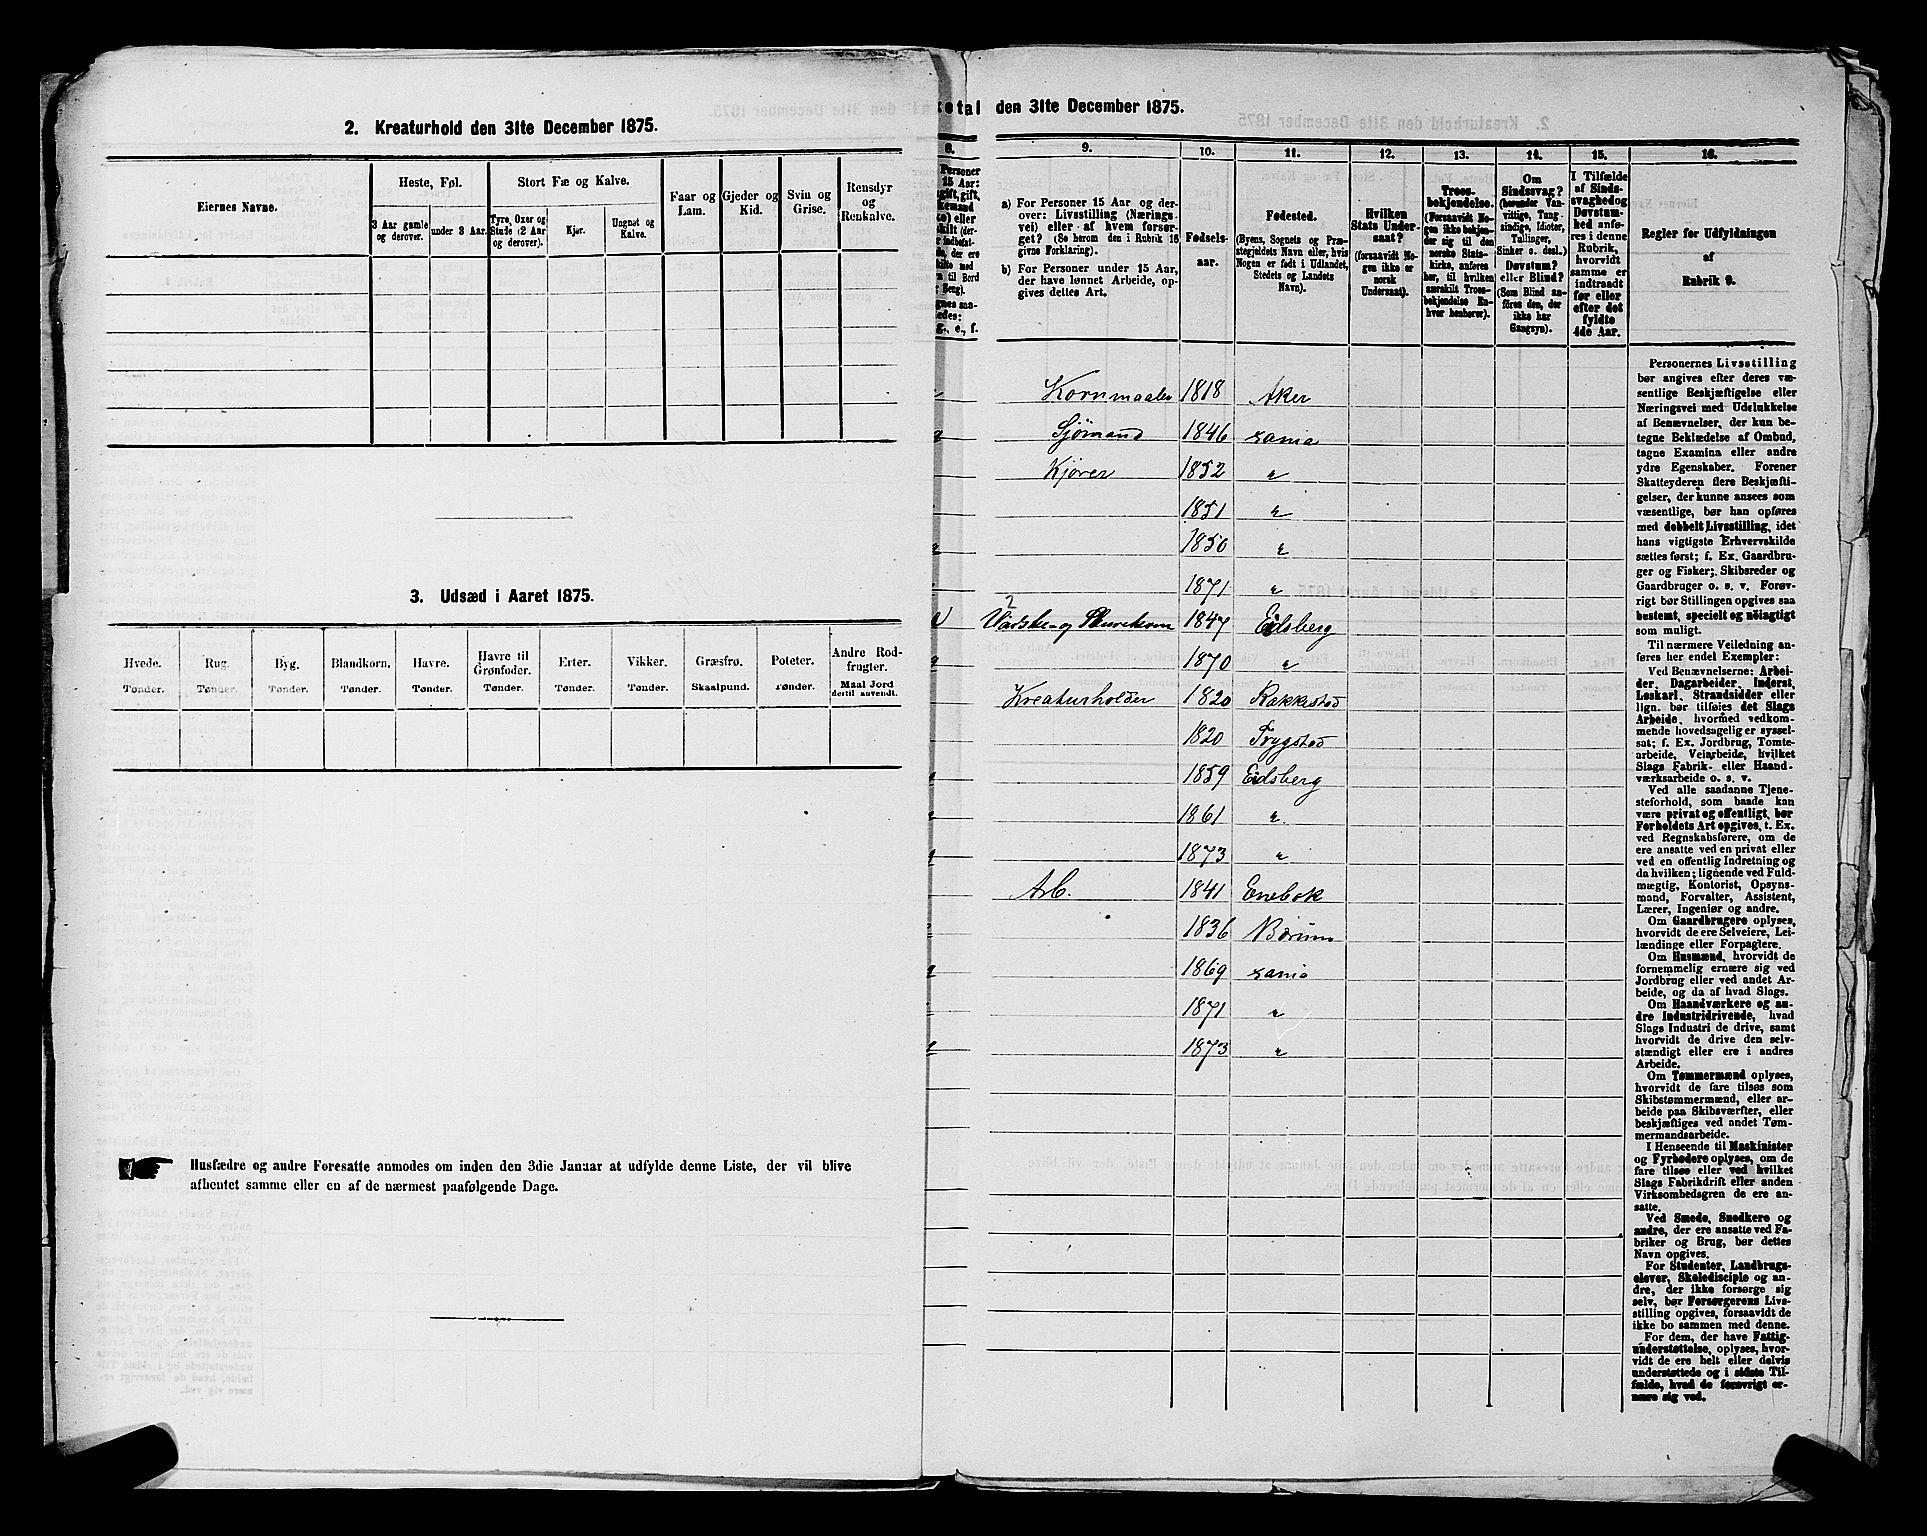 2. Kreaturhold den 31te December 1875.
Eiernes Navne.
Heste, Føl.
3 Aar gamle og derover.
under 3 Aar.
Stort Fæ og Kalve.
Tyre, Oxer og Stude (2 Aar og derover).
Kjør.
Ungnøt og Kalve.
Faar og Lam.
Gjeder og Kid.
Svin og Grise.
Rensdyr og Renkalve.
3. Udsæd i Aaret 1875.
Hvede. Rug. Byg. Blandkorn. Havre. Havre til Grønfoder. Erter. Vikker. Græsfrø. Poteter. Andre Rodfrugter.
Tønder. Tønder. Tønder. Tønder. Tønder. Tønder. Tønder. Tønder. Skaalpund. Tønder. Maal Jord dertil anvendt.
Husfædre og andre Foresatte anmodes om inden den 3die Januar at udfylde denne Liste, der vil blive
afhentet samme eller en af de nærmest paafølgende Dage.
den 31te December 1875.
8. 9. 10. 11. 12. 13. 14. 15. 16.
a) For Personer 15 Aar og derover: Livsstilling (Næringsvei) eller af hvem forsørget? (Se herom den i Rubrik 16 givne Forklaring).
b) For Personer under 15 Aar, der have lønnet Arbeide, opgives dettes Art.
Fødselsaar.
Fødested.
(Byens, Sognets og Præstegjeldets Navn eller, hvis Nogen er født i Udlandet, Stedets og Landets Navn).
Hvilken Stats Undersaat?
(forsaavidt Nogen ikke er norsk Undersaat).
Troesbekjendelse.
(Forsaavidt Nogen ikke bekjender sig til den norske Statskirke, anføres her, til hvilken særskilt Troesbekjendelse Enhver henhører).
Om Sindssvag?
(herunder Vanvittige, Tungsindige, Idioter, Tullinger, Sinker o. desl.)
Døvstum? eller Blind?
(Som Blind anføres den, der ikke har Gangsyn).
I Tilfælde af Sindssvaghed og Døvstumhed anføres i denne Rubrik, hvorvidt samme er indtraadt før eller efter det fyldte 4de Aar.
Regler før Udfyldningen
af
Rubrik 9.
Kornmaaler 1818 Aker
Sjømand 1846 sama
Kjører 1852 "
1851 "
1850 "
1871 "
1847 Eidsberg
1870 "
Kreaturholder 1820 Rakkestad
1820 Trygstad
1859 Eidsberg
1861 "
1873 "
Arb. 1841 Enebak
1836 Bærum
1869 sama
1871 "
1873 "
Personernes Livsstilling
bør angives efter deres væ-
sentlige Beskjæftigelse eller
Næringsvei med Udelukkelse
af Benævnelser, der kun be-
tegne Beklædelse af Ombud,
tagne Examina eller andre
ydre Egenskaber. Forener
Skatteyderen flere Beskjæfti-
gelser, der kunne ansees som
væsentlige, bør han opføres
med dobbelt Livsstilling, idet
hans vigtigste Erhvervskilde
sættes først; f. Ex. Gaardbru-
ger og Fisker; Skibsreder og
Gaardbruger o. s. v. Forøv-
rigt bør Stillingen opgives saa
bestemt, specielt og nøiagtigt
som muligt.
Til nærmere Veiledning an-
føres her endel Exempler:
Ved Benævnelserne: Arbei-
der, Dagarbeider, Inderst,
Løskarl, Strandsidder eller
lign. bør tilføies det Slags
Arbeide, hvormed vedkom-
mende hovedsagelig er syssel-
sat; f. Ex. Jordbrug, Tomte-
arbeide, Veiarbeide, hvilket
Slags Fabrik- eller Haand-
værksarbeide o. s. v.
Ved alle saadanne Tjene-
steforhold, som baade kan
være privat og offentligt, bør
Forholdets Art opgives, t. Ex.
ved Regnskabsførere, om de
ere ansatte ved en privat eller
ved en offentlig Indretning og
da hvilken; lignende ved Fuld-
mægtig, Kontorist, Opsyns-
mand, Forvalter, Assistent,
Lærer, Ingeniør og andre.
Om Gaardbrugere oplyses,
hvorvidt de ere Selveiere, Lei-
lændinge eller Forpagtere.
Om Husmænd, hvorvidt de
fornemmelig ernære sig ved
Jordbrug eller ved andet Ar-
beide, og da af hvad Slags.
Om Haandværkere og an-
dre Industridrivende, hvad
Slags Industri de drive, samt
hvorvidt de drive den selv-
stændigt eller ere i andres
Arbeide.
Om Tømmermænd oplyses,
hvorvidt de fare tilsøs som
Skibstømmermænd, eller ar-
beide paa Skibsværfter, eller
beskjæftiges ved andet Tøm-
mermandsarbeide.
I Henseende til Maskinister
og Fyrbødere oplyses, om de
fare tilsøs eller ved hvilket
Slags Fabrikdrift eller anden
Virksomhedsgren de ere an-
satte.
Ved Smede, Snedkere og
andre, der ere ansatte ved Fa-
briker og Brug, bør dettes
Navn opgives.
For Studenter, Landbrugs-
elever, Skoledisciple og an-
dre, der ikke forsørge sig
selv, bør Forsørgerens Livs-
stilling opgives, forsaavidt de
ikke bo sammen med denne.
For dem, der have Fattig-
understøttelse, oplyses, hvor-
vidt de ere helt eller delvis
understøttede og i sidste Til-
fælde, hvad de forøvrigt er-
nære sig ved.